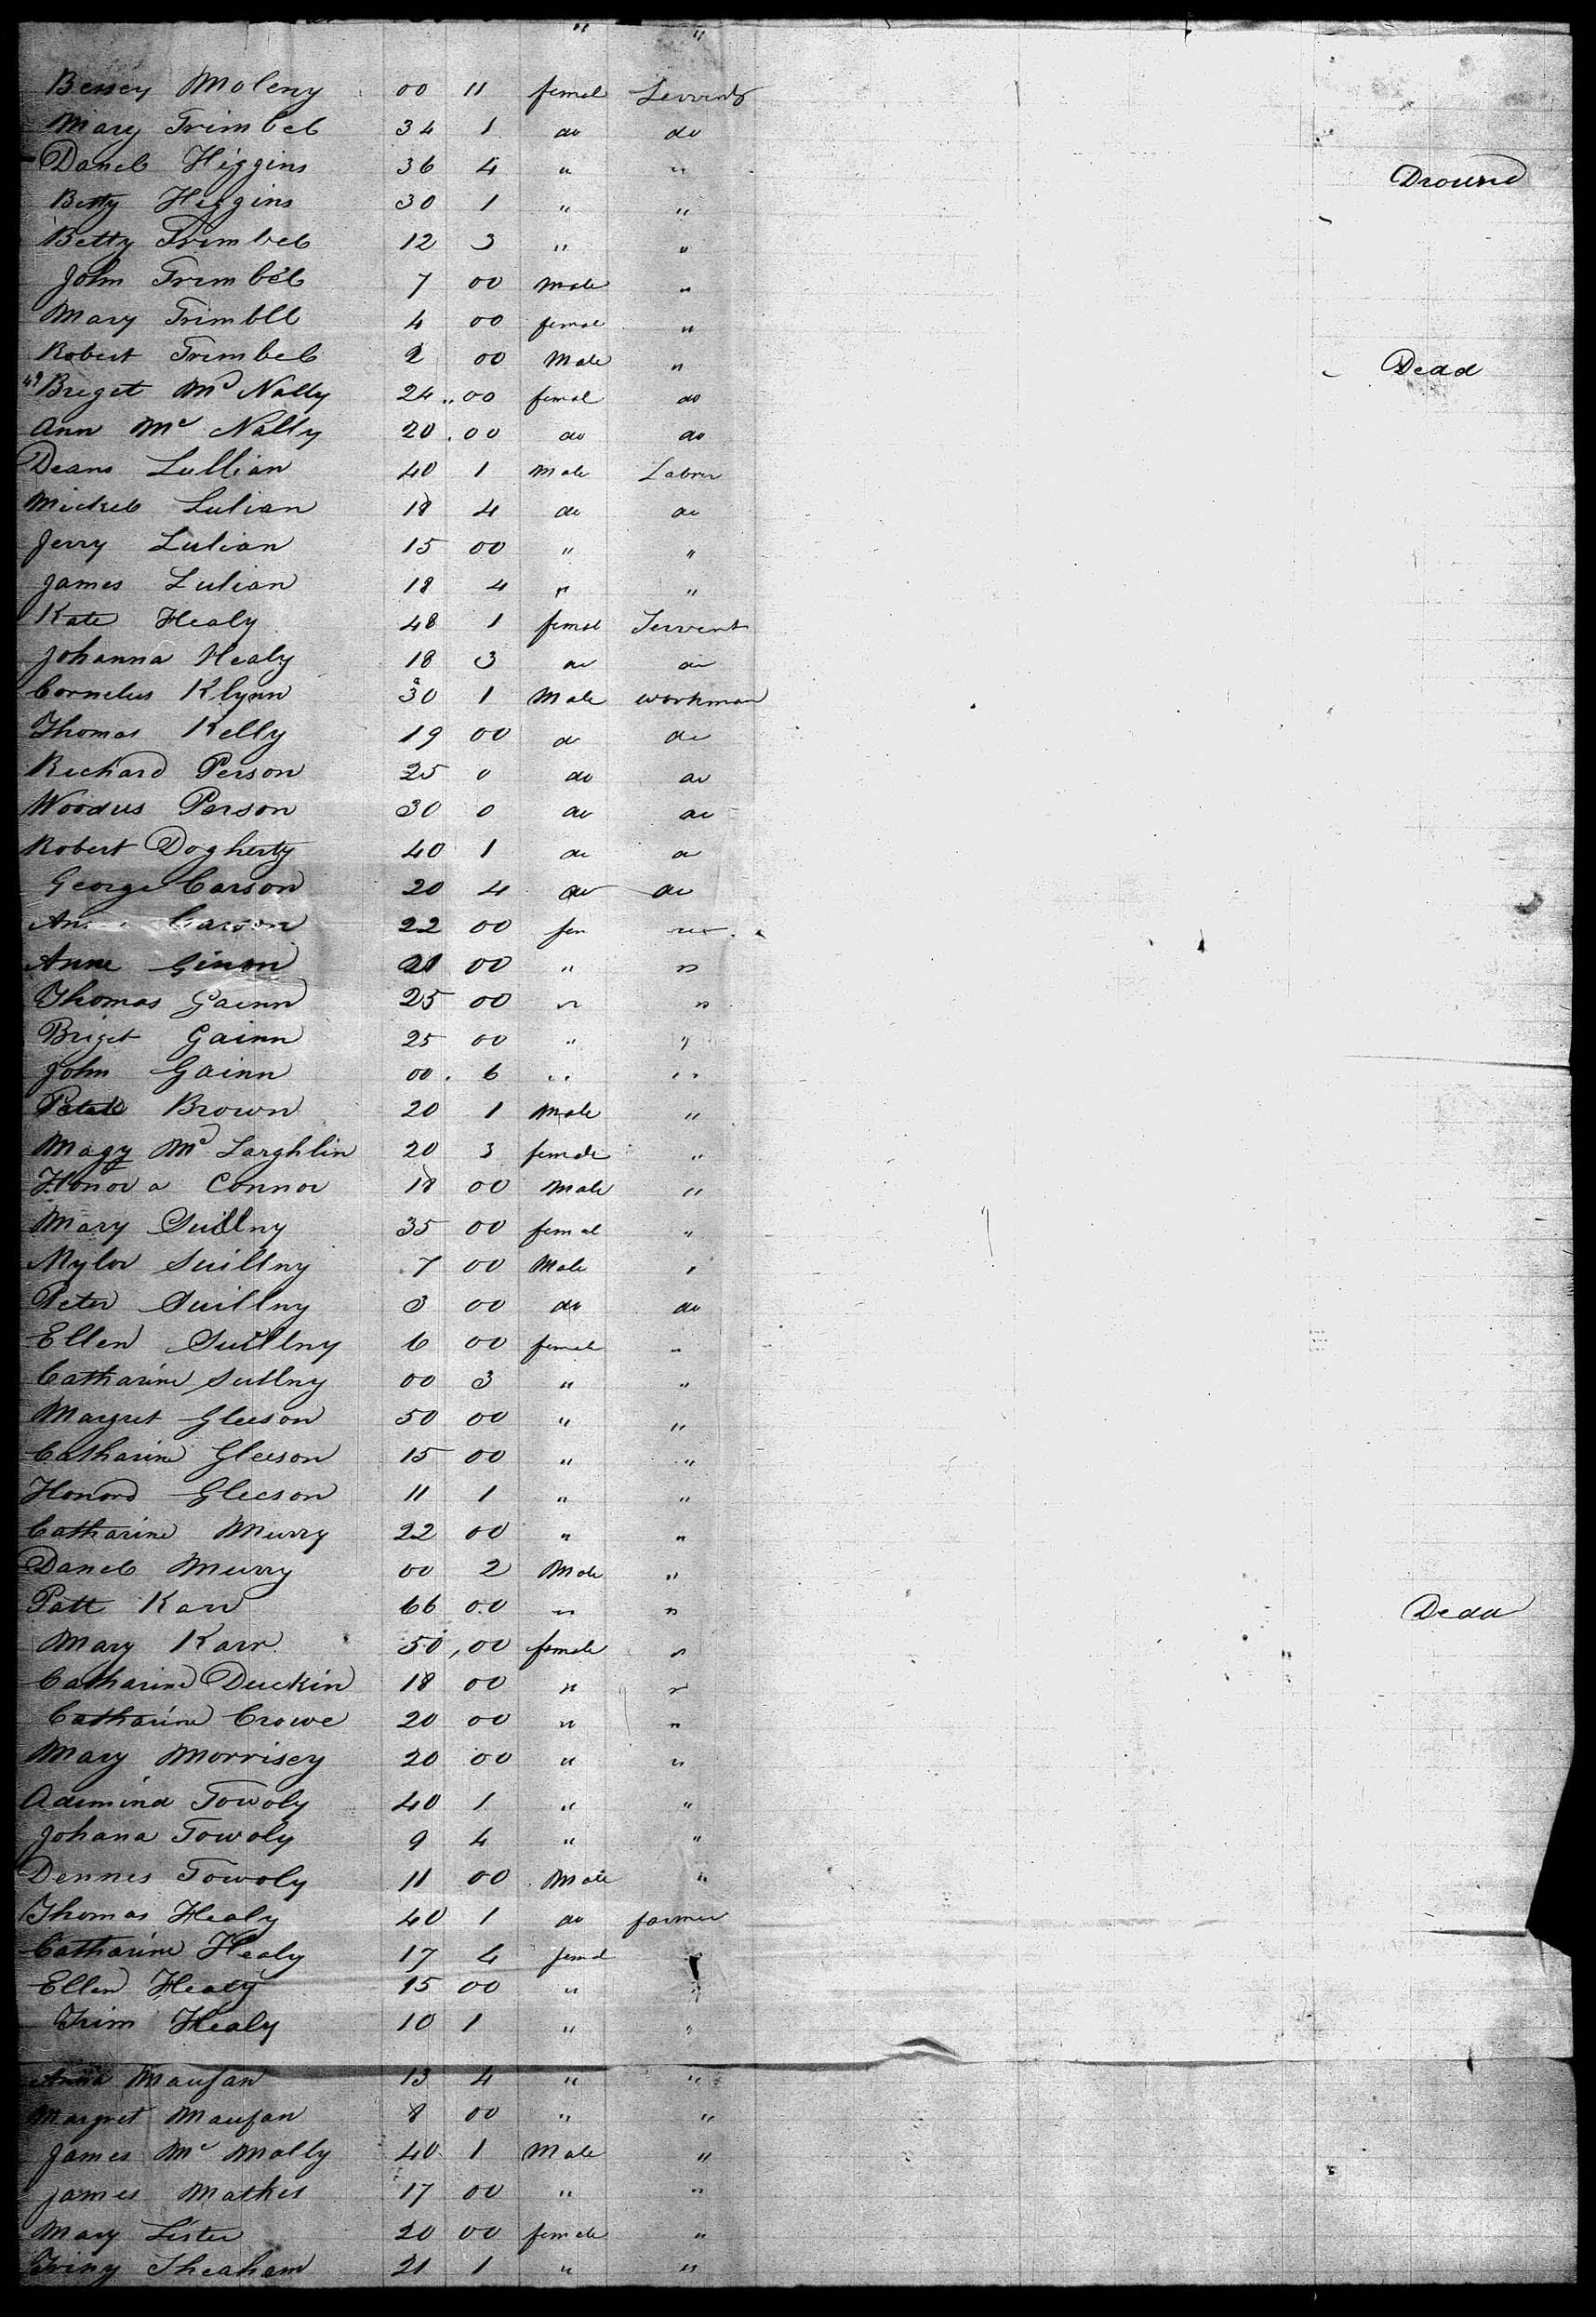 " "
Bessey Moleny 00 11 femal Servent
Mary Trimbel 34 1 do do
Danel Higgins 36 4 " " Dround
Betty Higgins 30 1 " "
Betty Trimbel 12 3 " "
John Trimbel 7 00 Male "
Mary Trimbll 4 00 femal "
Robert Trimbel 2 00 Male " Dead
49 Briget Mc Nally 24 00 femal do
Ann Mc Nally 20 00 do do
Deans Lullian 40 1 Male Labrer
Mickel Lulian 18 4 do do
Jerry Lulian 15 00 " "
James Lulian 18 4 " "
Kate Healy 48 1 femal Servent
Johanna Healy 18 3 do do
Cornelus Klynn 30 1 Male workman
Thomas Kelly 19 00 do do
Richard Person 25 0 do do
Woodus Person 30 0 do do
Robert Dogherty 40 1 do do
George Carson 20 4 do do
Carson 22 00 fem
Anne Ginon 21 00 " "
Thomas Gainn 25 00 " "
Briget Gainn 25 00 " "
John Gainn 00 6 " "
Brown 20 1 Male "
Magy Mc Larghlin 20 3 female "
Honora Connor 18 00 Male "
Mary Suillny 35 00 femal "
Mylor Suillny 7 00 Male "
Peter Suillny 3 00 do do
Ellen Suillny 6 00 femal "
Catharine Sullny 00 3 " "
Margret Gleeson 50 00 " "
Catharine Gleeson 15 00 " "
Honord Gleeson 11 1 " "
Catharine Murry 22 00 " "
Danel Murry 00 2 Male "
Patt Karr 66 00 " " Dead
Mary Karr 50 00 female "
Catharine Duckin 18 00 " "
Catharine Crowe 20 00 " "
Mary Morrisey 20 00 " "
Ademina Towoly 40 1 " "
Johana Towoly 9 4 " "
Dennes Towoly 11 00 Male "
Thomas Healy 40 1 do farmer
Catharine Healy 17 4 femal "
Ellen Healy 15 00 " "
Trim Healy 10 1 " "
Anna Maufan 13 4 " "
Margret Maufan 8 00 " "
James Mc Mally 40 1 Male "
James Mathes 17 00 " "
Mary Lister 20 00 female "
Triny Sheaham 21 1 " "